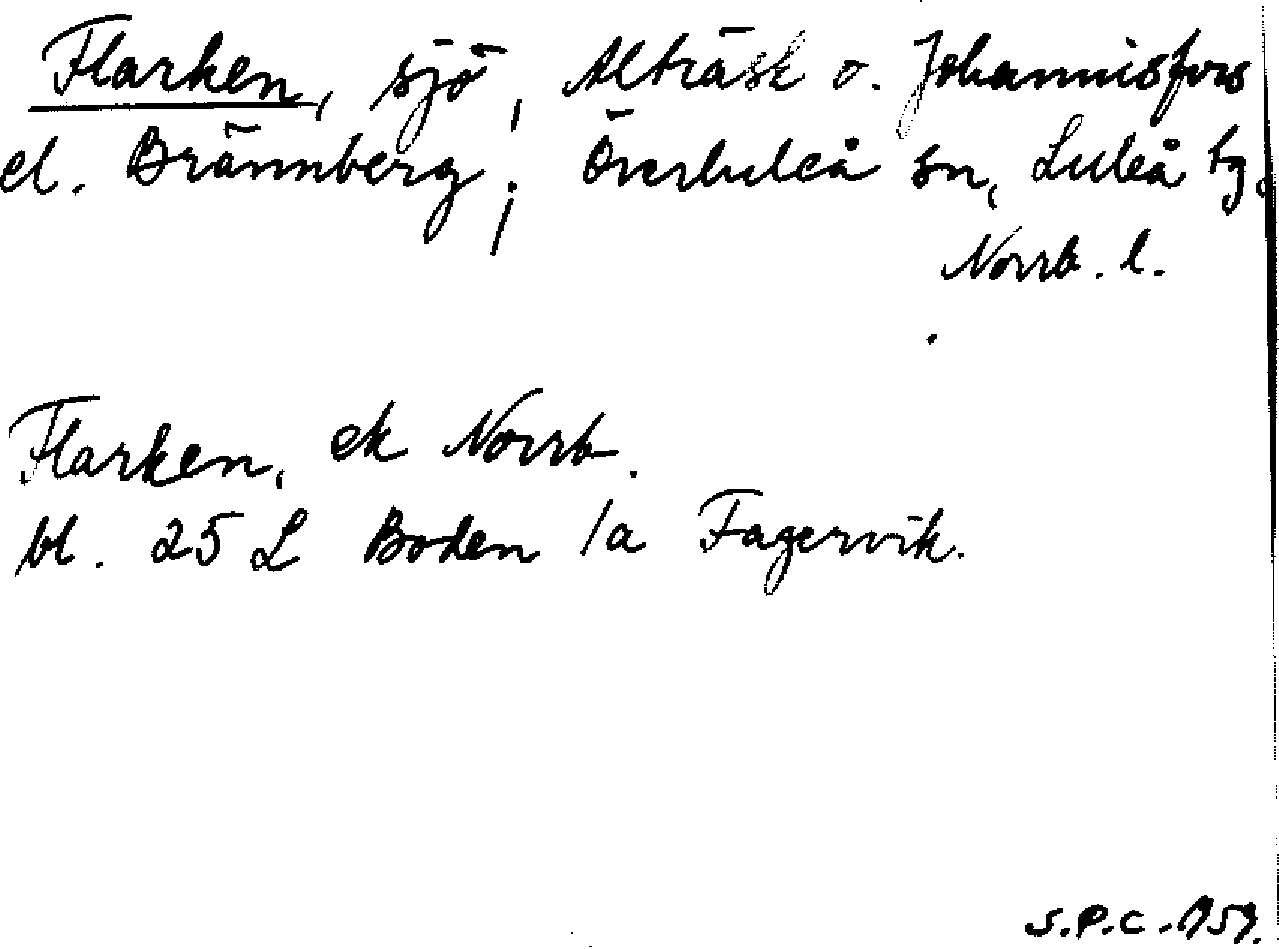 Flarken, sjö, Alträsk o. Johannisfors
el. Brännberg; Överluleå sn, Luleå tg.
Norrb. l.
Flarken, ek Norrb.
bl. 25 L Boden 1a Fagervik.
S.P.C. 1959.